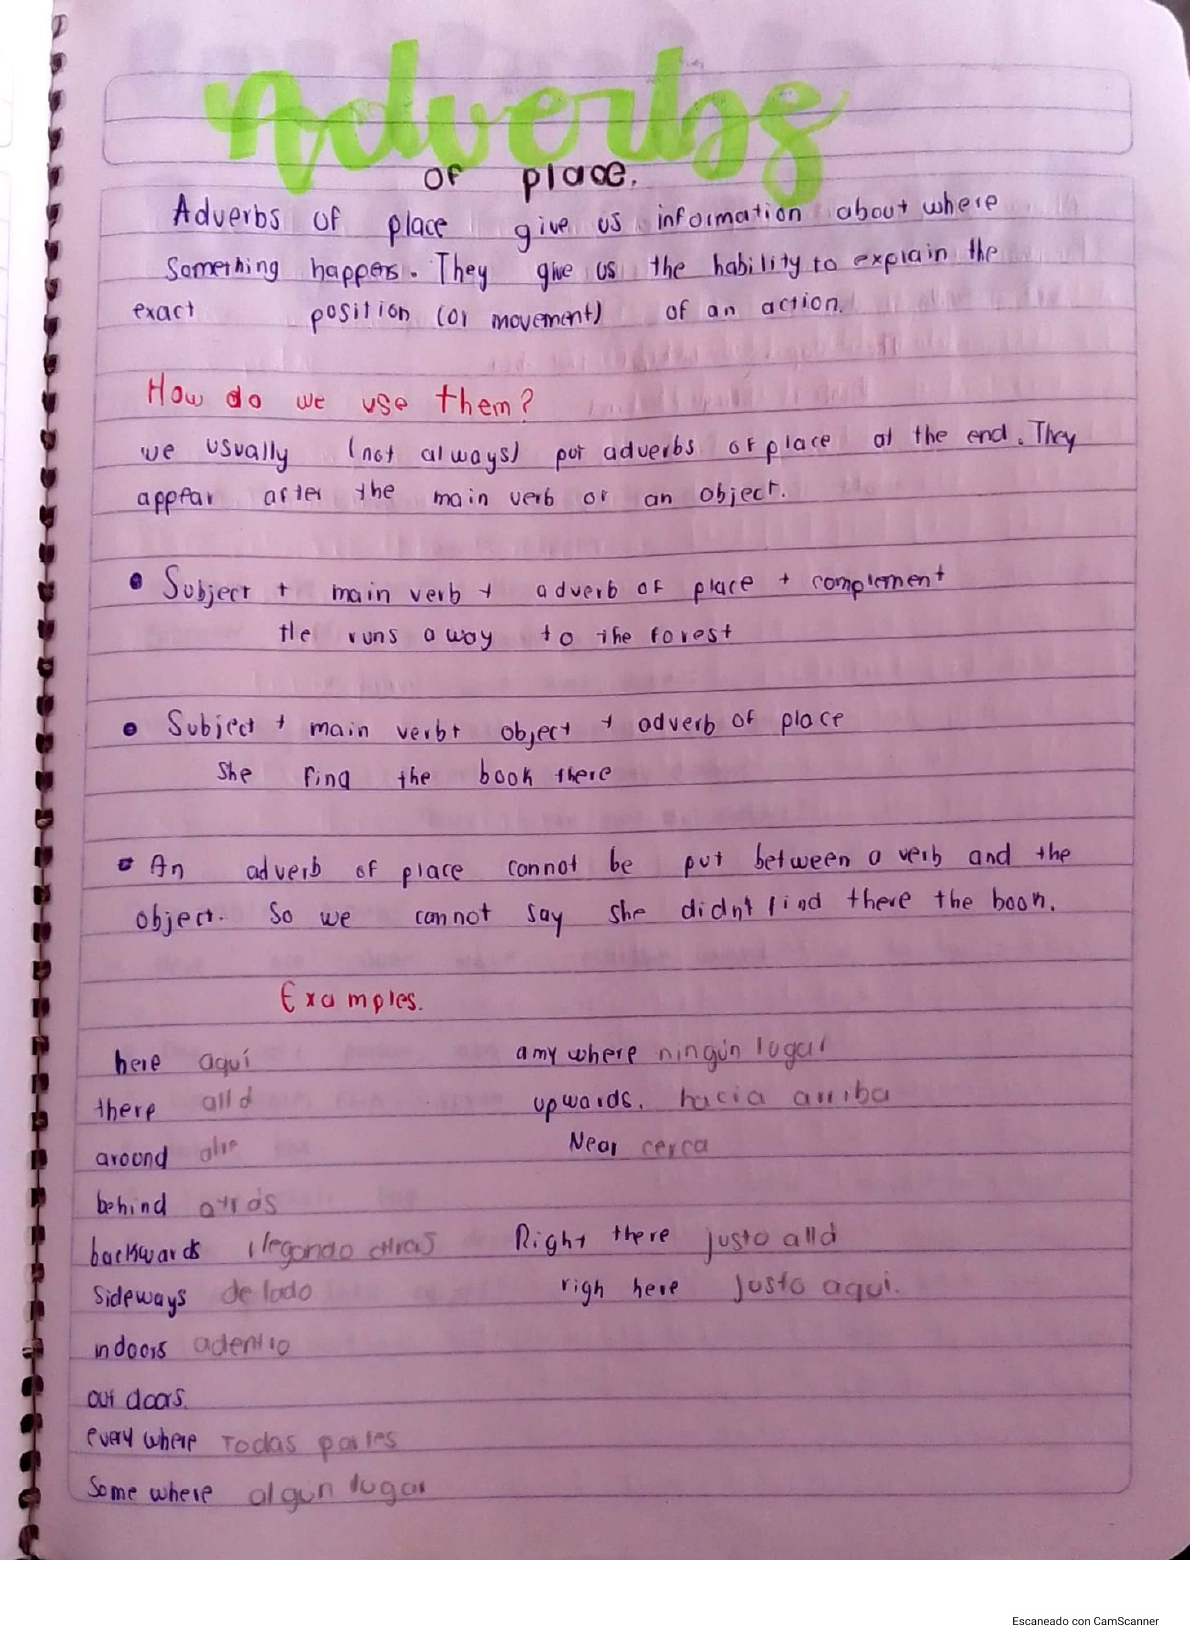 Adverbs
of place.
Adverbs of place give us information about where
Something happens. They give us the hability to explain the
exact position (or movement) of an action.
How do we use them?
we usually (not always) put adverbs of place at the end. They
appear after the main verb or an object.
• Subject + main verb + adverb of place + complement
He runs away to the forest
• Subject + main verb + object + adverb of place
She find the book there
• An adverb of place cannot be put between a verb and the
object. So we cannot say she didn't find there the book.
Examples.
here aquí
there allá
around
behind atrás
backwards llegando atras
Sideways de lado
indoors adentro
out doors.
every where Todas partes
Some where algún lugar
amy where ningún lugar
upwards. hacia arriba
Near cerca
Right there justo allá
righ here Justo aquí.
Escaneado con CamScanner